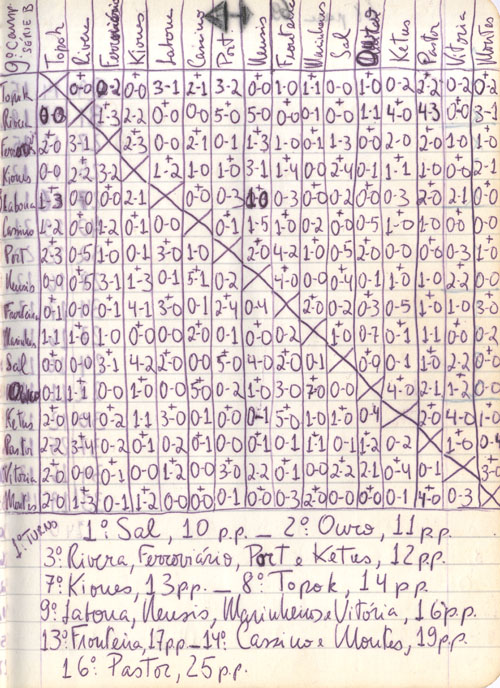 9º Camp. SÉRIE B Topok Rivera Ferroviário Kiones Latona Cassino Port Neusis Fronteira Marinheiros Sal Ouro Ketus Pastor Vitória Montes
Topok 0-0 0-2 0-0 3-1 2-1 3-2 0-0 1-0 1-1 0-0 1-0 0-2 2-2 0-2 0-2
Rivera 0-0 1-3 2-2 0-0 0-0 5-0 5-0 0-0 0-1 0-0 1-1 4-0 4-3 0-0 3-1
Ferroviário 2-0 3-1 2-3 0-0 2-1 0-1 1-3 1-0 0-1 1-3 0-0 2-0 2-0 1-0 1-0
Kiones 0-0 2-2 3-2 1-2 1-0 1-0 3-1 1-4 0-0 2-4 0-1 1-1 1-0 0-0 2-1
Latona 1-3 0-0 0-0 2-1 0-0 0-3 1-0 0-3 0-0 0-2 0-0 0-3 2-0 2-1 0-0
Cassino 1-2 0-0 1-2 0-1 0-0 0-1 1-5 1-0 0-2 0-0 0-5 1-0 1-0 0-0 0-0
Port 2-3 0-5 1-0 0-1 3-0 1-0 2-0 4-2 1-0 0-5 2-0 0-0 0-0 0-3 1-0
Neusis 0-0 0-5 3-1 1-3 0-1 5-1 0-2 4-0 0-0 0-4 0-1 1-0 1-0 2-2 0-0
Fronteira 0-1 0-0 0-1 4-1 3-0 0-1 2-4 0-4 2-0 0-2 0-3 0-5 1-0 1-0 3-0
Marinheiros 1-1 1-0 1-0 0-0 0-0 2-0 0-1 0-0 0-2 1-0 0-7 0-1 1-1 0-0 0-2
Sal 0-0 0-0 3-1 4-2 2-0 0-0 5-0 4-0 2-0 0-1 0-0 0-1 1-0 2-2 0-0
Ouro 0-1 1-1 0-0 1-0 0-0 5-0 0-2 1-0 3-0 7-0 0-0 4-0 2-1 1-2 0-0
Ketus 2-0 0-4 0-2 1-1 3-0 0-1 0-0 0-1 5-0 1-0 1-0 0-4 2-0 4-0 1-0
Pastor 2-2 3-4 0-2 0-1 0-2 0-1 0-0 0-1 0-1 1-1 0-1 1-2 0-2 1-0 0-4
Vitória 2-0 0-0 0-1 0-0 1-2 0-0 3-0 2-2 0-1 0-0 2-2 2-1 0-4 0-1 3-0
Montes 2-0 1-3 0-1 1-2 0-0 0-0 0-1 0-0 0-3 2-0 0-0 0-0 0-1 4-0 0-3
1º TURNO 1º Sal, 10 p.p. — 2º Ouro, 11 p.p.
3º Rivera, Ferroviário, Port e Ketus, 12 p.p.
7º Kiones, 13 pp. — 8º Topok, 14 p.p.
9º Latona, Neusis, Marinheiros e Vitória, 16 p.p.
13º Fronteira, 17 pp. — 14º Cassino e Montes, 19 p.p.
16º Pastor, 25 p.p.